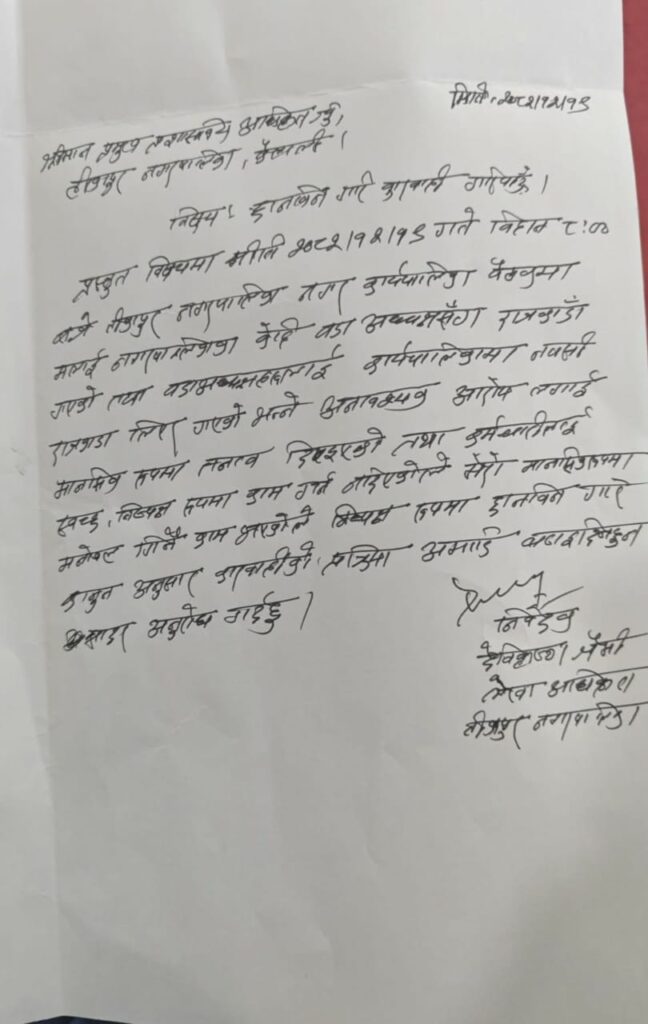 मिति: २०८२/१२/१९
श्रीमान प्रमुख प्रशासकीय अधिकृत ज्यू,
टीकापुर नगरपालिका, कैलाली।
विषय: छानविन गरि कारवाही गरिपाउँ।
प्रस्तुत विषयमा मिति २०८२/१२/१९ गते विहान ८:००
बजे टीकापुर नगरपालिका नगर कार्यपालिका बैठकमा
मलाई नगरपालिकाका केहि वडा अध्यक्षसँग
गएको तथा वडाअध्यक्षहरुलाई कार्यपालिकामा नवसी
लिएर गएको भन्ने अनावश्यक आरोप लगाई
मानसिक रुपमा तनाव दिइएको तथा कर्मचारीलाई
स्वच्छ, निष्पक्ष रुपमा काम गर्न नदिएकोले मेरो मानसिकरुपमा
मनोवल गिर्ने काम भएकोले निष्पक्ष रुपमा छानविन गरि
कानुन अनुसार कारवाहीको प्रक्रिया अगाडि बढाइदिनुहुन
सादर अनुरोध गर्दछु।
निवेदक
लेखा अधिकृत
टीकापुर नगरपालिका।